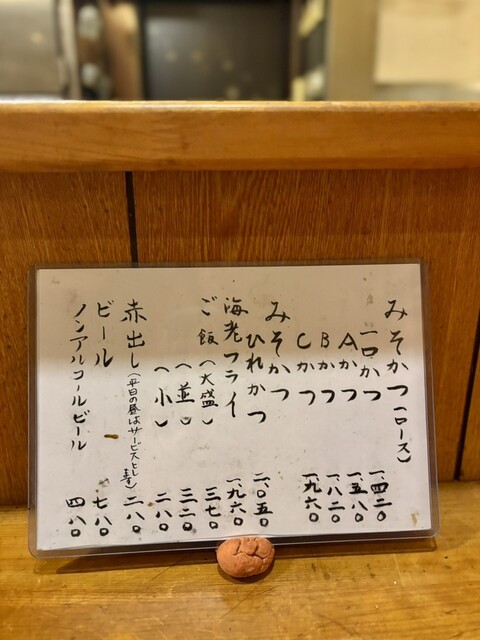 みそかつ(ロース)
一口かつ 一、四二〇
Aかつ 一、五八〇
Bかつ 一、八二〇
Cかつ 一、九六〇
みそかつ
ひれかつ 二、〇五〇
海老フライ 一、九六〇
ご飯(大盛) 三七〇
(並) 三二〇
(小) 二八〇
赤出し(平日の昼はサービスとします) 二八〇
ビール 七八〇
ノンアルコールビール 四八〇